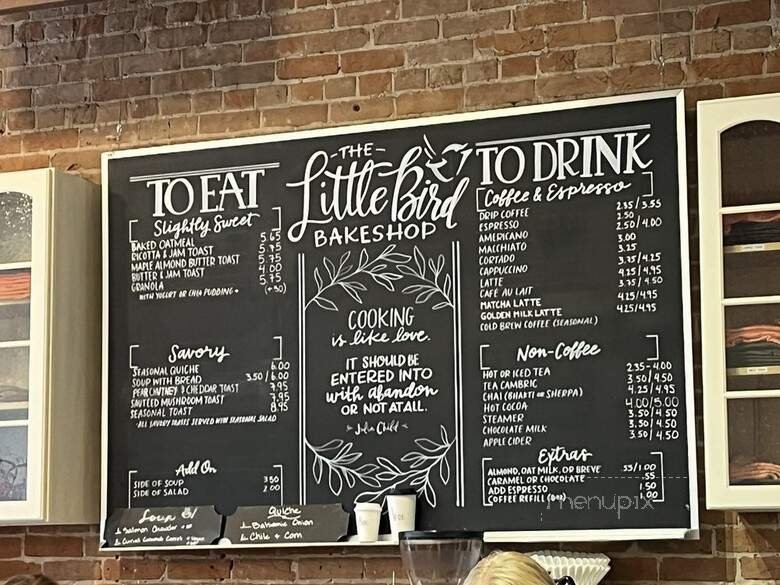 THE
Little Bird
BAKESHOP
TO EAT
Slightly Sweet
BAKED OATMEAL 5.65
RICOTTA & JAM TOAST 5.75
MAPLE ALMOND BUTTER TOAST 5.75
BUTTER & JAM TOAST 4.00
GRANOLA 5.75
WITH YOGURT OR CHIA PUDDING + (+.50)
Savory
SEASONAL QUICHE 6.00
SOUP WITH BREAD 3.50/6.00
PEAR CHUTNEY & CHEDDAR TOAST 7.95
SAUTEED MUSHROOM TOAST 7.95
SEASONAL TOAST 8.95
*ALL SAVORY TOASTS SERVED WITH SEASONAL SALAD
Add On
SIDE OF SOUP 3.50
SIDE OF SALAD 2.00
Soup
1. Salmon Chowder
2. Curried Coconut Carrot
Quiche
1. Bohemic Onion
2. Chile + Corn
COOKING
is like love.
IT SHOULD BE
ENTERED INTO
with abandon
OR NOT AT ALL.
Julia Child
TO DRINK
Coffee & Espresso
DRIP COFFEE 2.85/3.55
ESPRESSO 2.50
AMERICANO 2.50/4.00
MACCHIATO 3.00
CORTADO 3.25
CAPPUCCINO 3.75/4.25
LATTE 4.25/4.95
CAFÉ AU LAIT 3.75/4.50
MATCHA LATTE 4.25/4.95
GOLDEN MILK LATTE 4.25/4.95
COLD BREW COFFEE (SEASONAL)
Non-Coffee
HOT OR ICED TEA 2.35-4.00
TEA CAMBRIC 3.50/4.50
CHAI (BHAKTI OR SHERPA) 4.25/4.95
HOT COCOA 4.00/5.00
STEAMER 3.50/4.50
CHOCOLATE MILK 3.50/4.50
APPLE CIDER 3.50/4.50
Extras
ALMOND, OAT MILK, OR BREVE .55/1.00
CARAMEL OR CHOCOLATE .55
ADD ESPRESSO 1.50
COFFEE REFILL 1.00
menupix